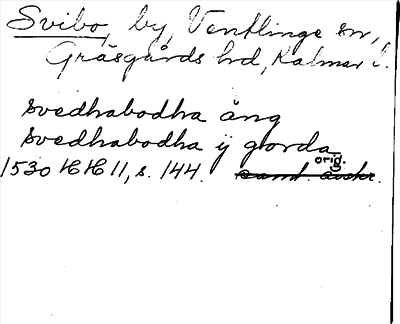 Svibo, by, Ventlinge sn,
Gräsgårds hd, Kalmar l.
svedhabodha äng
svedhabodha ij gorda
orig.
1530 HH 11, s. 144. samt. avskr.